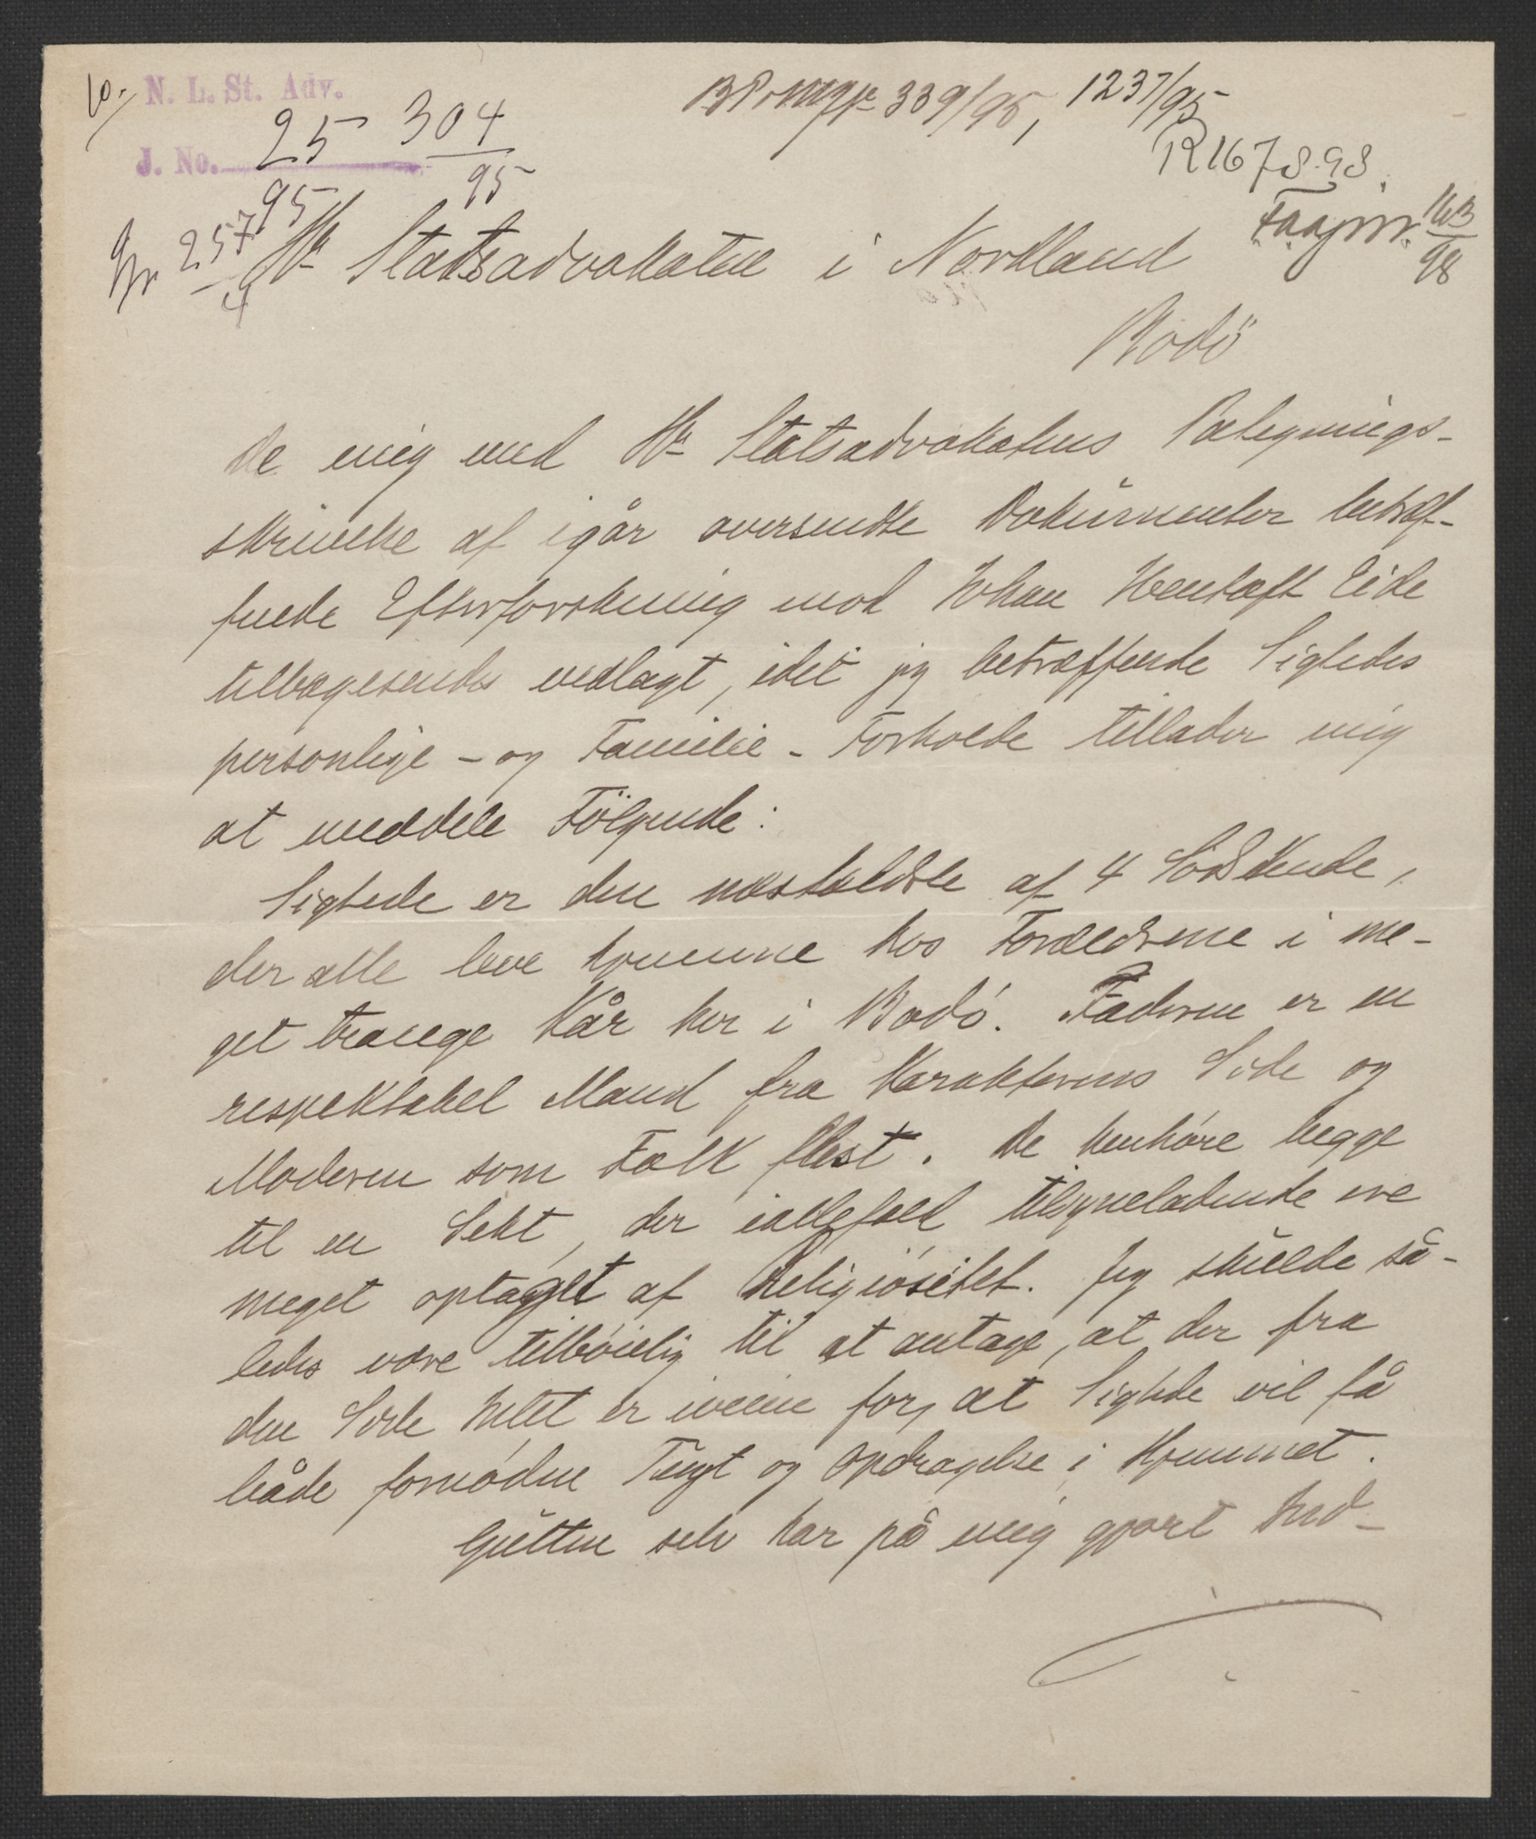 N. L. St. Adv.
J. No. 25 304
95 95
339/95, 1237/95
R 167 S. 98.
163
98
257
4
Hr Statsadvokaten i Nordland
Bodö
De mig med Hr Statsadvokatens Paategnings-
skrivelse af igår oversendte Dokumenter betræf-
fende Efterforskning mod Johan Eide
tilbagesendes vedlagt, idet jeg betræffende Sigtedes
personlige - og Familie - Forholde tillader mig
at meddele Fölgende:
Sigtede er den næstældste af 4 Södskende,
der alle leve hjemme hos Forældrene i me-
get trange Kår her i Bodö. Faderen er en
respektabel Mand fra Karakterens Side og
Moderen som Folk flest. De henhöre begge
til en Sekt, der iallefald tilsyneladende ere
meget optaget af Religiösitet. Jeg skulde så-
ledes være tilböielig til at antage, at der fra
den Side Intet er iveien for, at Sigtede vil få
både fornöden Tugt og Opdragelse i Hjemmet.
Gutten selv har på mig gjort Ind-